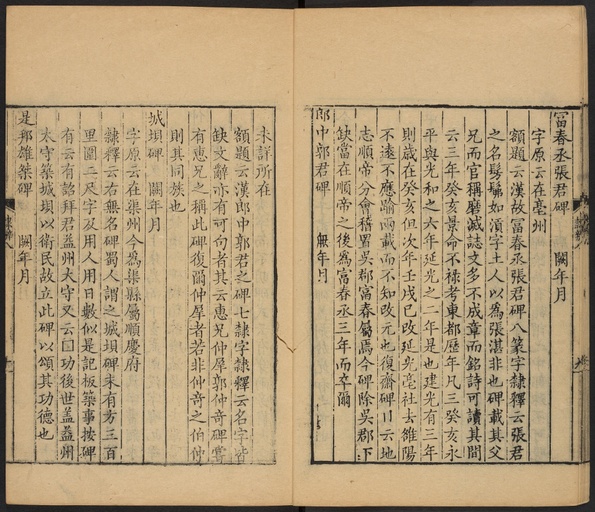 富春丞張君碑 闕年月
字原云在亳州
額題云漢故富春丞張君碑八篆字隸釋云張君
之名髣髴如湏字土人以為張湛非也碑載其父
兄而官稱磨滅誌文多不成章而銘詩可讀其間
云三年癸亥景命不祿考東都歷年凡三癸亥永
平與光和之六年延光之二年是也建光有三年
則歲在癸亥但次年壬戌已改延光亳社去雒陽
不逺不應踰兩載而不知改元也復齋碑目云地
志順帝分會稽置吳郡富春屬焉今碑除吳郡下
缺當在順帝之後為富春丞三年而卒爾
郎中郭君碑 無年月
未詳所在
額題云漢郎中郭君之碑七隸字隸釋云名字皆
缺文辭亦有可句者其云惠兄仲犀郭仲竒碑嘗
有惠兄之稱此碑復爾仲犀者若非仲竒之伯仲
則其同族也
城垻碑 闕年月
字原云在渠州今為渠縣屬順慶府
隸釋云右無名碑蜀人謂之城垻碑來有方三百
里圖二尺字及用人用日數似是記板築事按碑
有云有詔拜君益州太守又云囙功後世盖益州
太守築城垻以衛民故立此碑以頌其功德也
是邦雄桀碑 闕年月